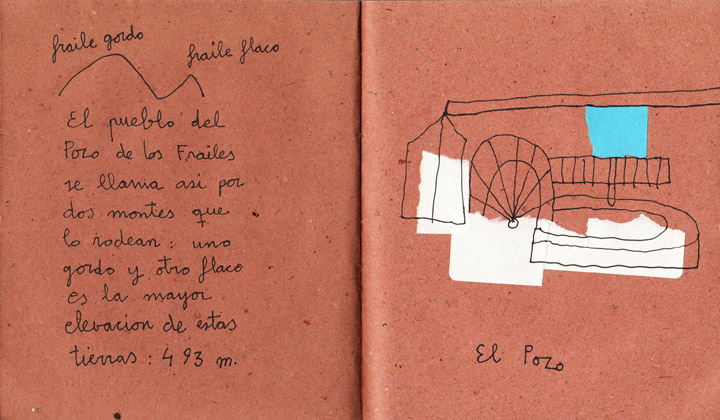 fraile gordo
fraile flaco
El pueblo del
Pozo de los Frailes
se llama asi por
dos montes que
lo rodean: uno
gordo y otro flaco
es la mayor
elevacion de estas
tierras: 493 m.
El Pozo